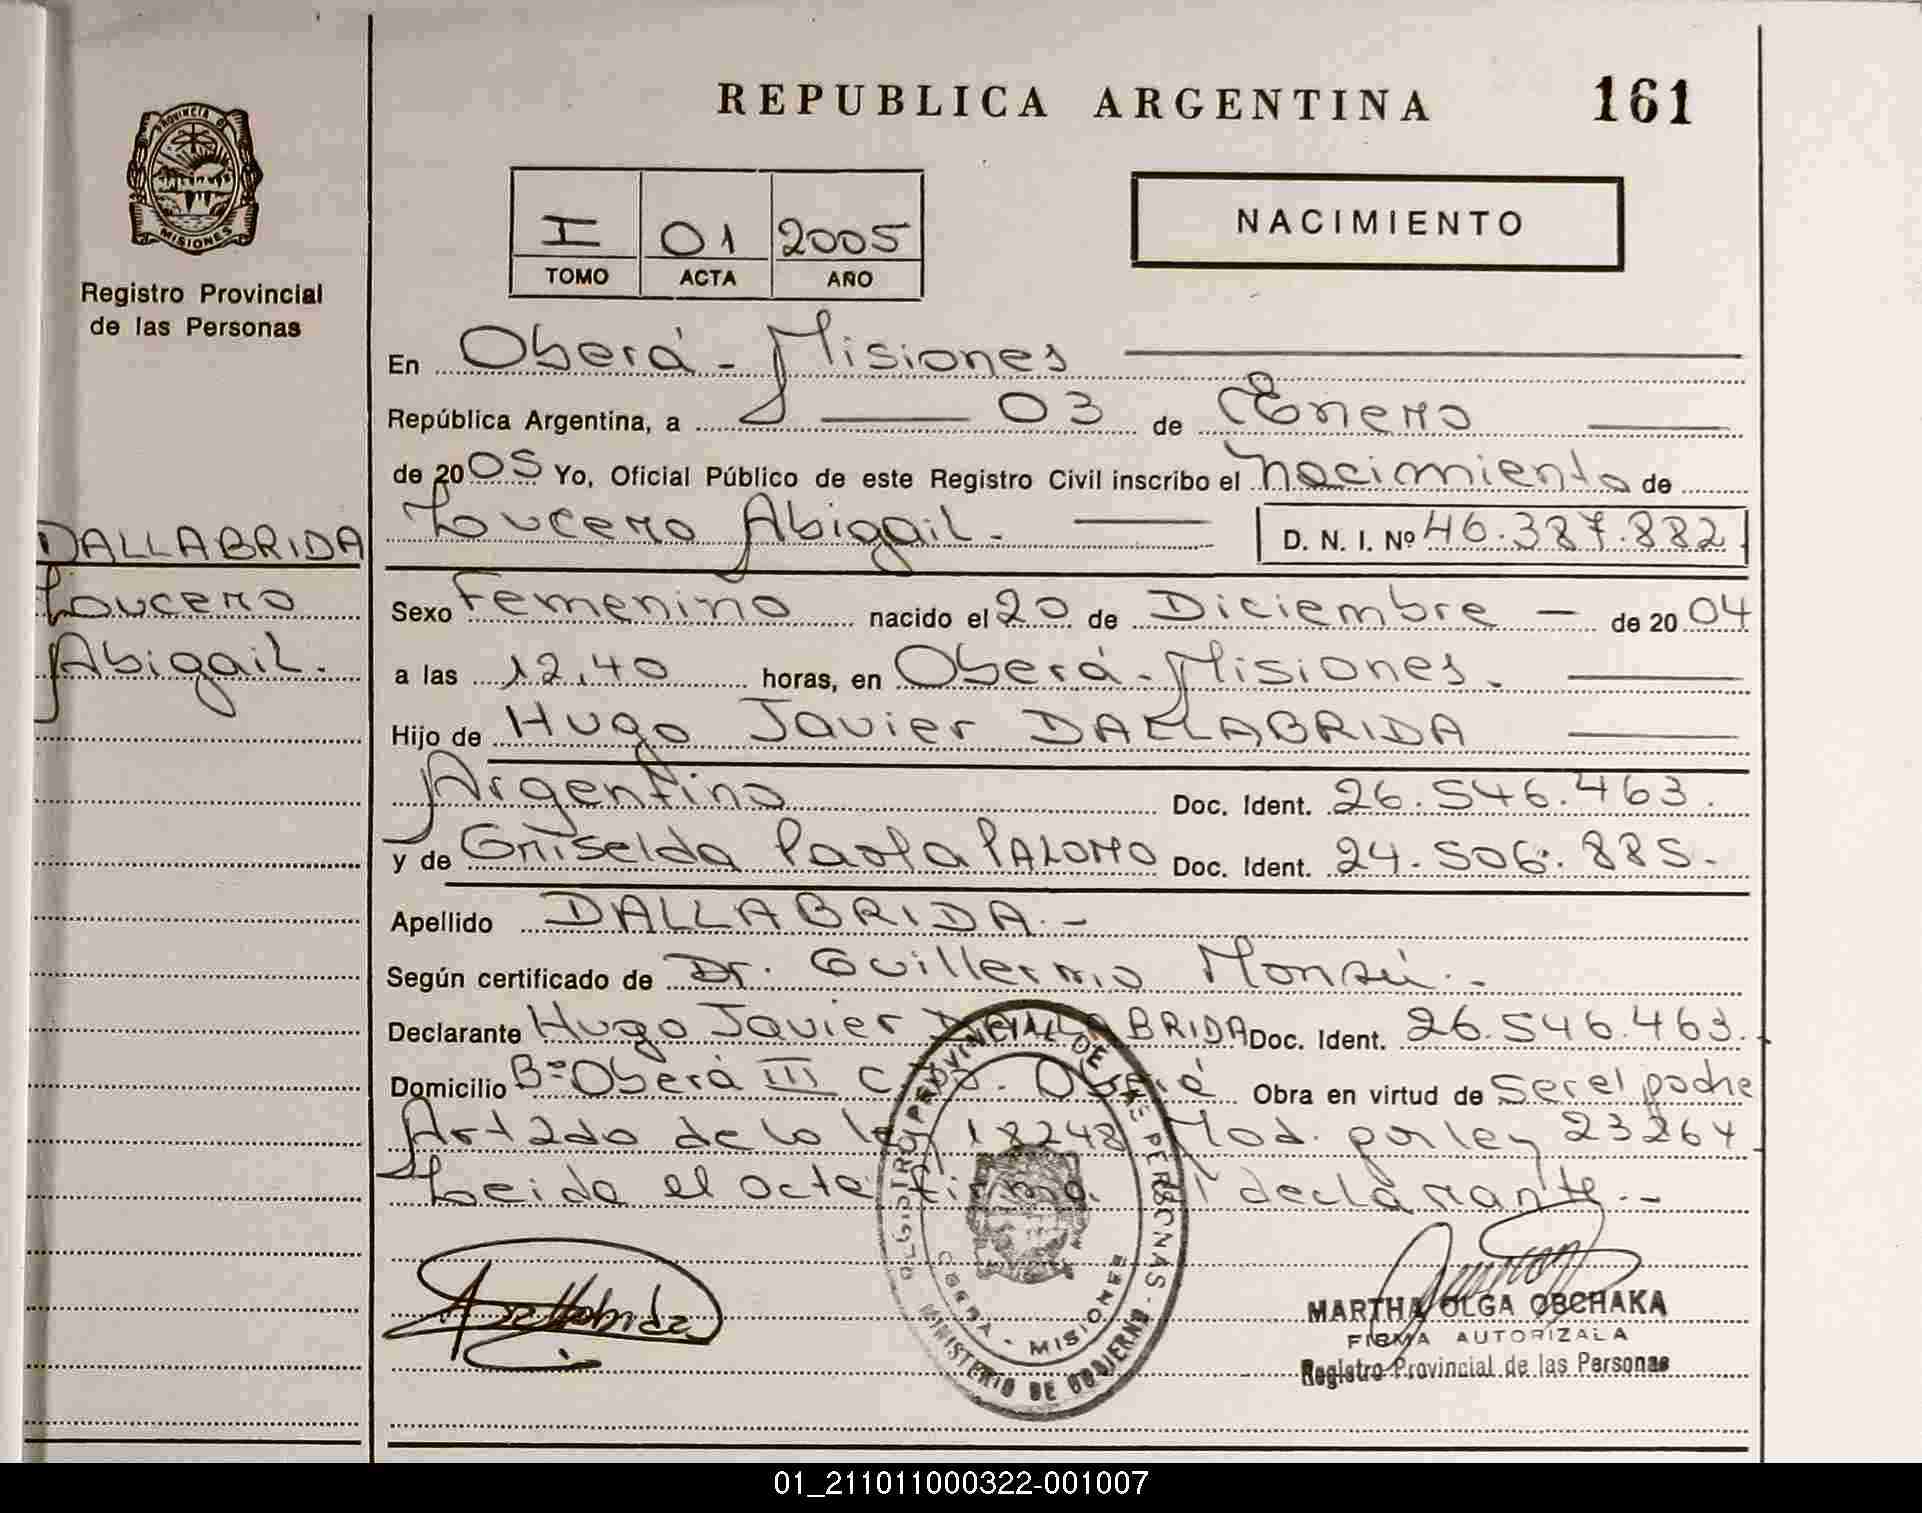 REPUBLICA ARGENTINA 161
PROVINCIA DE
MISIONES
Registro Provincial
de las Personas
I 01 2005
TOMO ACTA AÑO
NACIMIENTO
En Oberá - Misiones
República Argentina, a 03 de Enero
de 2005 Yo, Oficial Público de este Registro Civil inscribo el nacimiento de
Loucero Abigail.- D. N. I. Nº 46.387.882
DALLABRIDA
Loucero
Abigail.
Sexo Femenino nacido el 20 de Diciembre - de 2004
a las 12,40 horas, en Oberá - Misiones.
Hijo de Hugo Javier DALLABRIDA
Argentino Doc. Ident. 26.546.463.
y de Griselda Paola PALOMO Doc. Ident. 24.506.885.-
Apellido DALLABRIDA.-
Según certificado de Dr. Guillermo Monzú.-
Declarante Hugo Javier DALLABRIDA Doc. Ident. 26.546.463.
Domicilio Bº Oberá III Oberá Obra en virtud de ser el padre
Art 2do de la ley 18248 Mod. por ley 23264
Leida el acta firma el declarante.-
REGISTRO PROVINCIAL DE LAS PERSONAS -
MINISTERIO DE GOBIERNO
OBERA - MISIONES
MARTHA OLGA OBCHAKA
FIRMA AUTORIZADA
Registro Provincial de las Personas
01_211011000322-001007